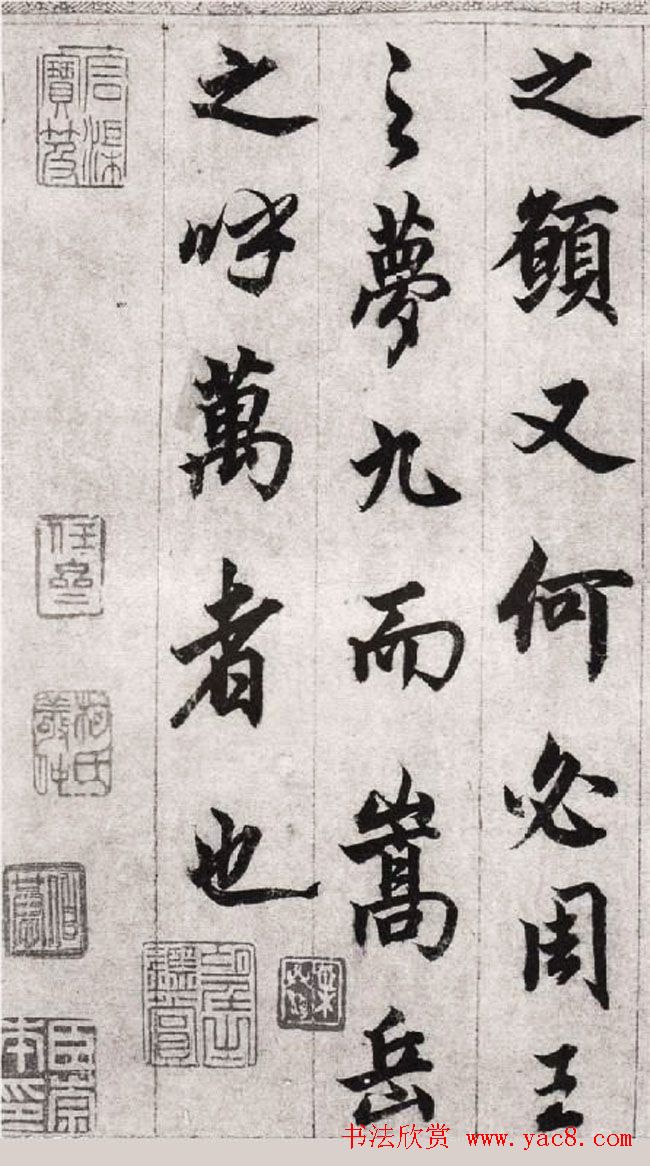 之願又何必周王
之夢九而嵩岳
之呼萬者也
书法欣赏 www.yac8.com